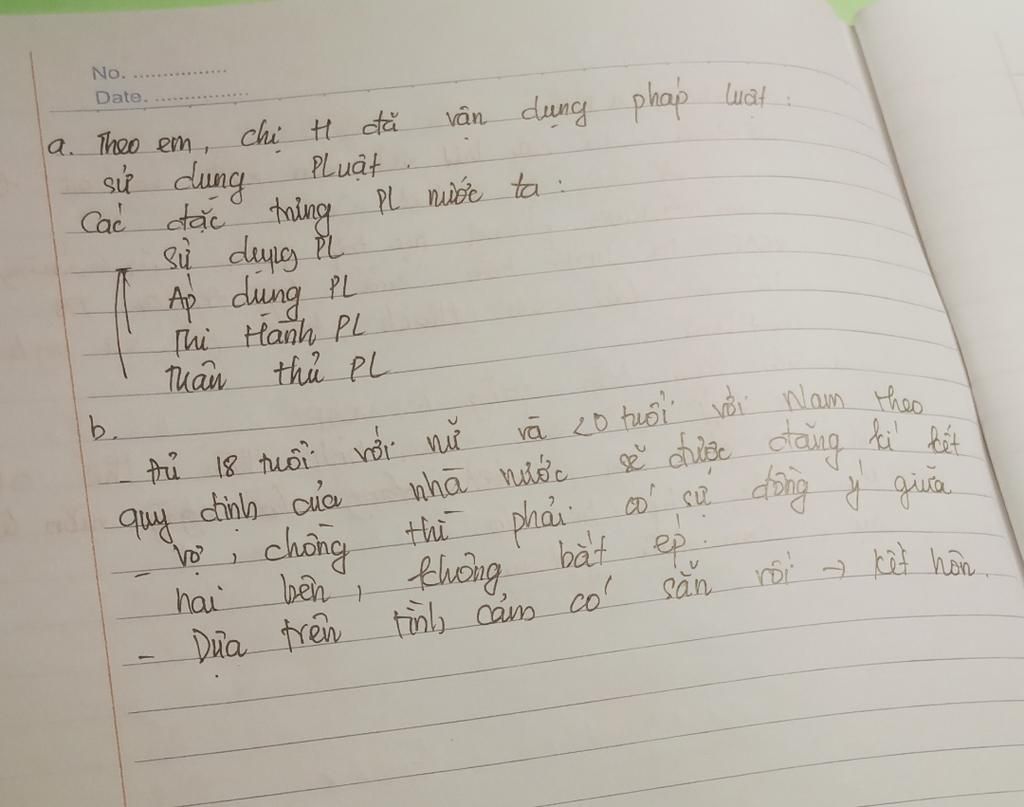 No. ................
Date. ................
a. Theo em, chị H đã vận dụng pháp luật :
sử dụng PLuật.
Các đặc trưng PL nước ta :
Sử dụng PL
Áp dụng PL
Thi Hành PL
Tuân thủ PL
b.
- Đủ 18 tuổi với nữ và 20 tuổi với Nam theo
quy định của nhà nước sẽ được đăng kí kết
- Vợ, chồng thì phải có sự đồng ý giữa
hai bên, không bắt ép.
- Dựa trên tình cảm có sẵn rồi → kết hôn.